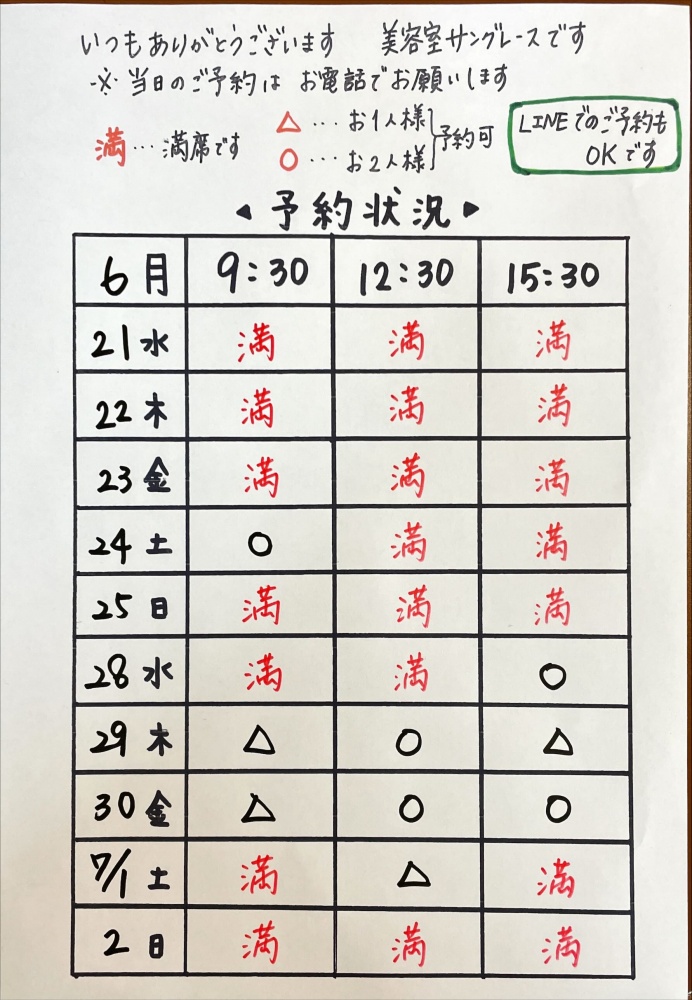 いつもありがとうございます 美容室サングレースです
※当日のご予約は お電話でお願いします
満…満席です
△…お1人様
○…お2人様
予約可
LINEでのご予約も
OKです
◀予約状況▶
6月 9:30 12:30 15:30
21水 満 満 満
22木 満 満 満
23金 満 満 満
24土 ○ 満 満
25日 満 満 満
28水 満 満 ○
29木 △ ○ △
30金 △ ○ ○
7/1土 満 △ 満
2日 満 満 満